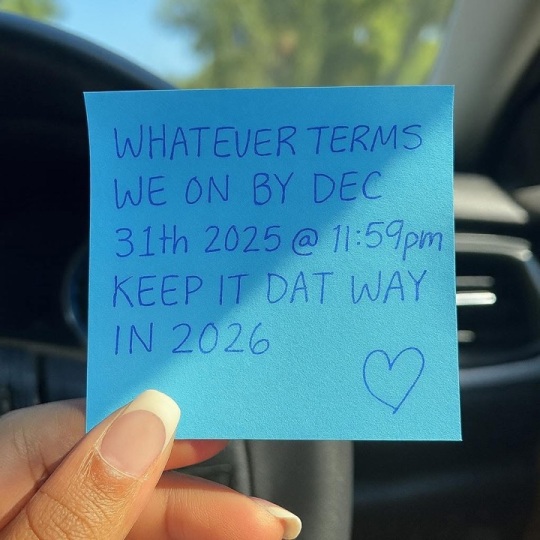 WHATEVER TERMS
WE ON BY DEC
31th 2025 @ 11:59pm
KEEP IT DAT WAY
IN 2026